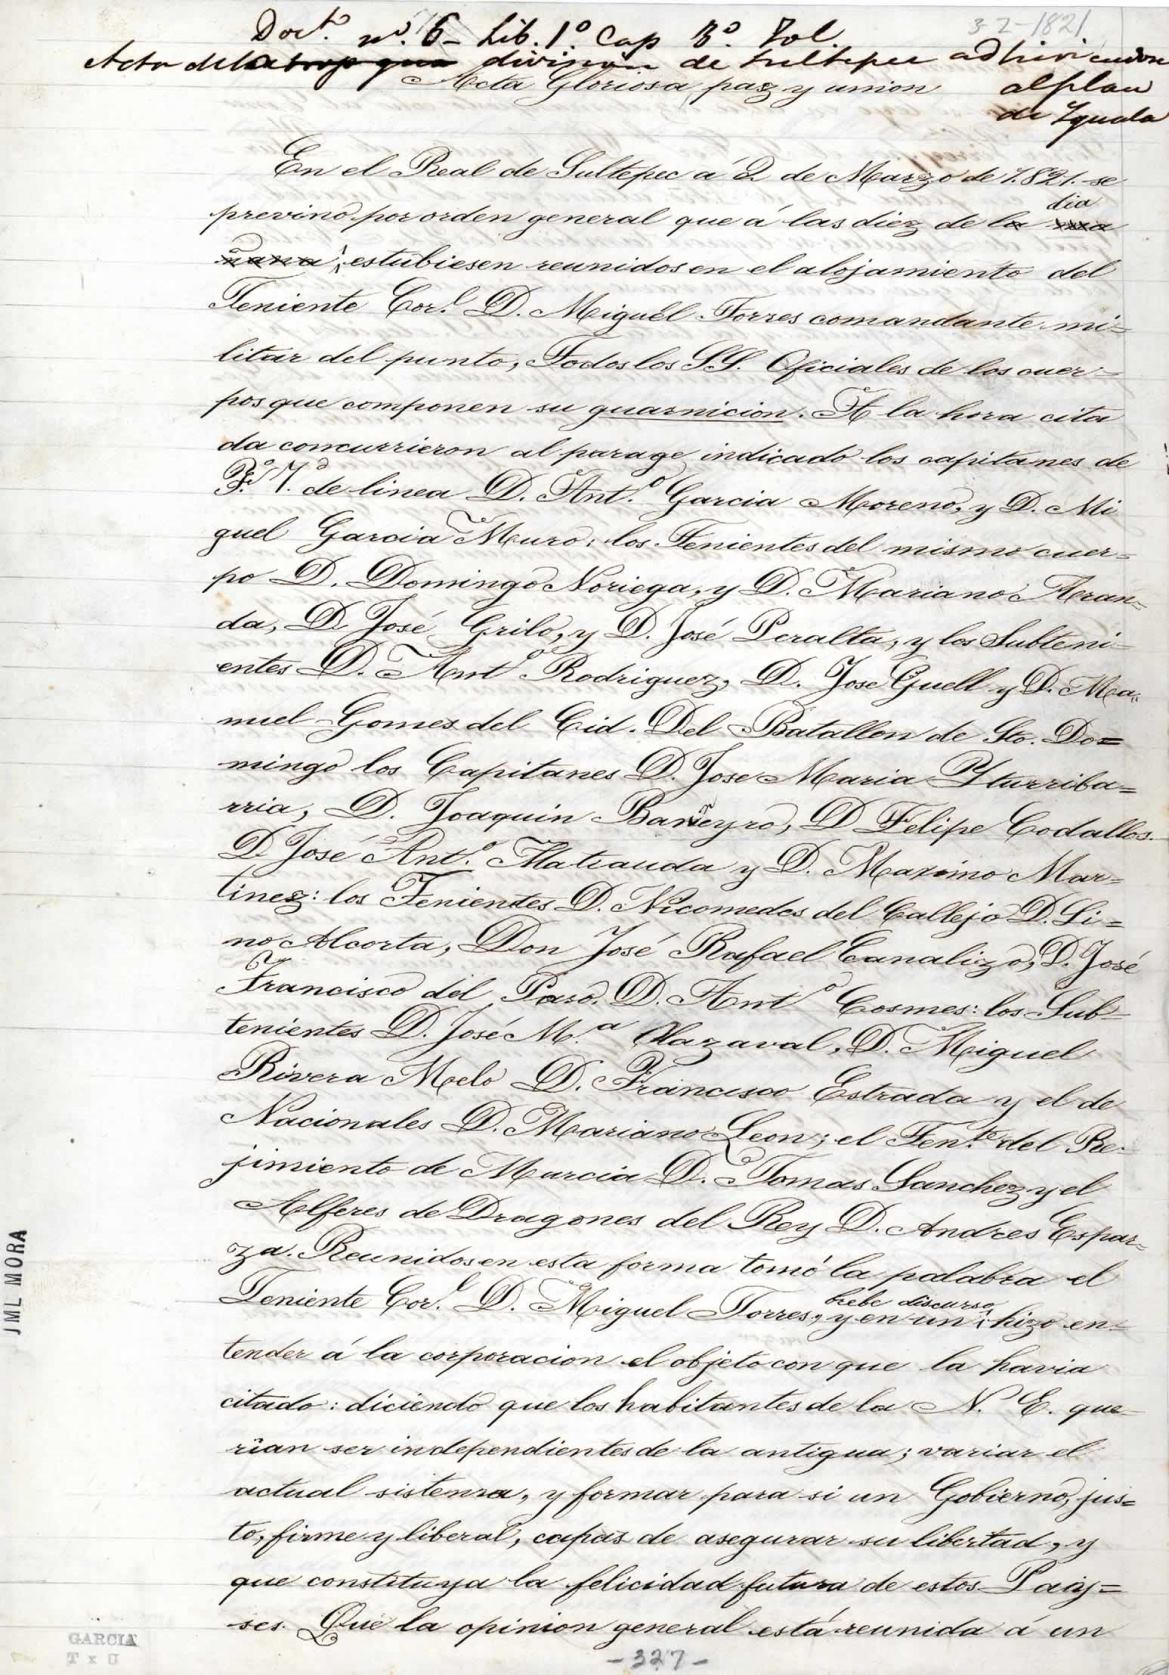 3-2-1821
Doct.º nº. 6- Lib. 1º Cap 3º. Fol.
Acta de la tropa que division de Sultepec adhiriendose
Acta Gloriosa, paz y union al plan
de Iguala
En el Real de Sultepec a 2 de Marzo de 1.821. se
dia
previno por orden general que á las diez de la
ñana, estubiesen reunidos en el alojamiento del
Teniente Cor.l D. Miguél Torres comandante mi=
litar del punto, Todos los SS. Oficiales de los cuer-
pos que componen su guarnicion. A la hora cita
da concurrieron al parage indicado los capitanes de
F.º 7.º de linea D. Ant.º Garcia Moreno, y D. Mi
guel Garcia Muro: los Tenientes del mismo cuer=
po D. Domingo Noriega, y D. Mariano Aran=
da, D. José Grilo, y D. José Peralta, y los Subteni-
entes D. Antº Rodriguez, D. Jose Guell y D. Ma=
nuel Gomes del Cid. Del Batallon de Sto. Do=
mingo los Capitanes D. Jose Maria Yturriba=
rria, D. Joaquin Bareyro, D Felipe Codallos.
D. José Ant.º Matiauda y D. Maximo Mar=
tinez: los Tenientes D. Nicomedes del Callejo D. Li=
no Alcorta, Don José Rafael Canalizo, D. José
Francisco del Paso. D. Antº Cosmes: los Sub-
tenientes D. José M.ª Olazaval, D. Miguel
Rivera Melo D. Francisco Estrada y el de
Nacionales D. Mariano Leon; el Ten.te del Re-
jimiento de Murcia D. Tomas Sanchez y el
Alferes de Dragones del Rey D. Andres Espar-
za. Reunidos en esta forma tomó la palabra el
brebe discurso
Teniente Cor.l D. Miguel Torres, y en un hizo en=
tender á la corporacion el objeto con que la havia
citado: diciendo que los habitantes de la N. E. que-
rian ser independientes de la antigua; variar el
actual sistema, y formar para si un Gobierno, jus=
to, firme y liberal, capas de asegurar su libertad, y
que constituya la felicidad futura de estos Pay=
ses. Que la opinion general está reunida á un
-327-
JML MORA
GARCIA
T x U